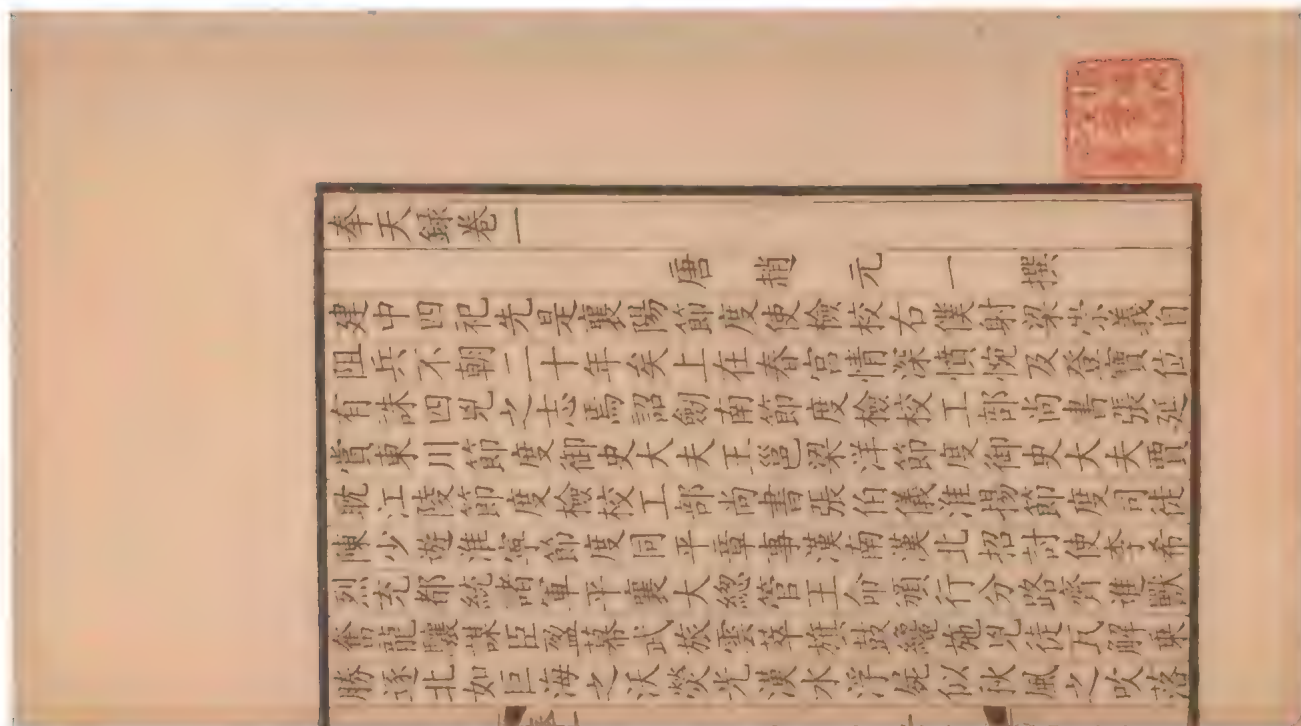 奉天錄卷一
唐 趙 元 一 撰
建中四祀先是襄陽節度使檢校右僕射梁崇義自
阻兵不朝二十年矣上在春宮情深憤惋及登寶位
有誅四兇之志焉詔劒南節度檢校工部尚書張延
賞東川節度御史大夫王邕梁洋節度御史大夫賈
耽江陵節度檢校工部尚書張伯儀淮揚節度司徒
陳少遊淮寧節度同平章事漢南漢北招討使李希
烈充都統諸軍平襄大總管王命頒行分路齊進獸
奮龍驤謀臣盈幕武旅雲萃旗鼓纔施兇徒瓦解乘
勝逐北如巨海之沃熒光漢水浮屍似秋風之吹落